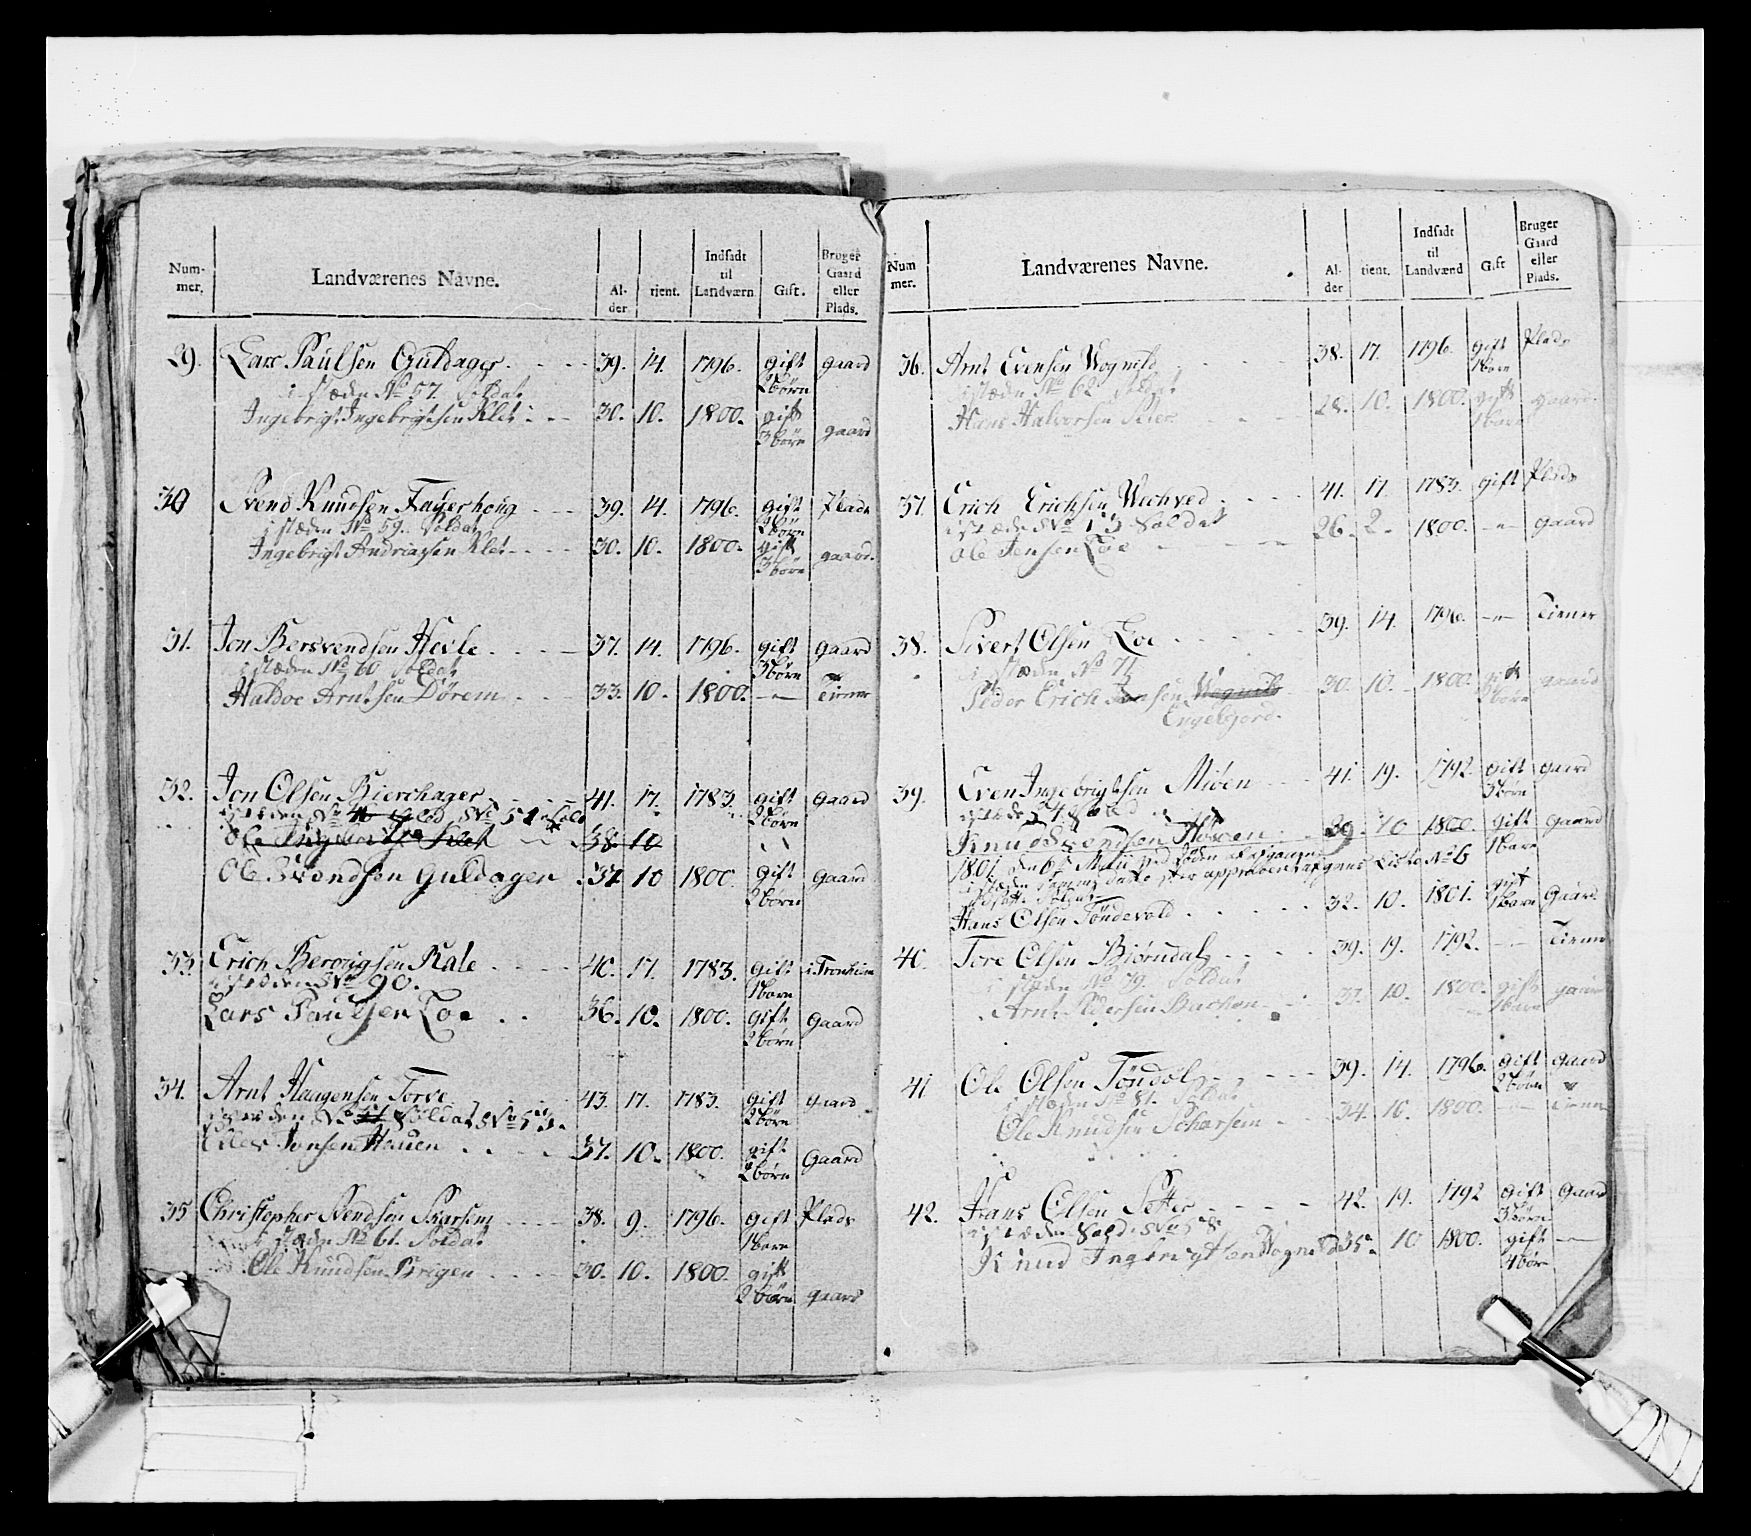 Num-
mer.
Landværenes Navne.
Al-
der
tient.
Indsadt
til
Landværn
Gift.
Bruger
Gaard
eller
Plads.
29. Lars Paulsen Guldager. 39. 14. 1796. gift gaard
i stæden No 57. Soldat 2 børn
Ingebrigt Ingebrigtsen Klet 30. 10. 1800. gift
3 børn gaard
30 Svend Knudsen Fagerhoug 39. 14. 1796. gift Plads
i stæden No 59. Soldat 2 børn
Ingebrigt Andriassen Klet 30. 10. 1800. gift
3 børn gaard.
31. Jon Bersvendsen Hevle. 37. 14. 1796. gift gaard
i stæden No 60 Soldat 3 børn
Haldoe Arntsen Dörem 33. 10. 1800. -"- Tiener
32. Jon Olsen Bierchager 41. 17. 1783. gift gaard
i stæden No 51 Sold 2 børn
38 10
Ole Svendsen Guldagen 37 10 1800. gift gaard
2 børn
33. Erich Berongsen Kale 40. 17. 1783. gift i Tronhiem
i stæden No 90. 1 barn
Lars Paulsen Loe 36. 10. 1800. gift gaard
2 børn
34. Arnt Haagensen Torve 43. 17. 1783. gift gaard
i stæden No Soldat No 53. 2 børn
Jonsen Hauen 37. 10. 1800. gift gaard
2 børn
35 Christopher Svendsen Skarsem 38. 9. 1796. gift Plads
i stæden No 61. Soldat 1 barn
Ole Knudsen Brigen 30. 10. 1800. gift
2 børn gaard
Num
mer.
Landværenes Navne.
Al-
der
tient.
Indsadt
til
Landværnd
Gift
Bruger
Gaard
eller
Plads.
36. Arnt Evensen Wognild 38. 17. 1796. gift Plads
i stæden No 62 Soldat 1 barn
Hans Halvorsen 28. 10. 1800. gift gaard.
1 barn
37. Erich Erichsen Wechved 41. 17. 1783. gift Plads
i stæden No 13 Soldat
Ole Jensen Loe 26. 2. 1800. -"- gaard
38. Sivert Olsen Loe 39. 14. 1796. -"- Tiener
i stæden No 71
Peder Erichsen Wognild 30. 10. 1800. gift gaard
Engelsjord. 2 børn
39. Even Ingebrigtsen Miöen 41. 19. 1792 gift gaard
i stæden 3 børn
Knud Svendsen Hoven 39. 10 1800. gift gaard
1801 den 6t Maii ved döden afgangen 1 barn
i stæden approberet afgangs Liste No 6
Hans Olsen Töndevold 32. 10. 1801. gift 1 barn Gaard
40. Tore Olsen Biørndal 39. 19. 1792. -"- Tiener
i stæden No 79. Soldat
Arnt Pedersen Bachen 37. 10. 1800. gift gaard
1 barn
41 Ole Olsen Töndel 39. 14. 1796. gift gaard
i stæden No 81. Soldat 2 børn
Ole Knudsen Scharsem 34. 10. 1800. -"- Tiener
42. Hans Olsen Setter 42. 19. 1792 gift Gaard
i stæden Sold: No 58 3 børn
Knud Ingebrigtsen Wognild 35. 10 1800. gift
4 bør